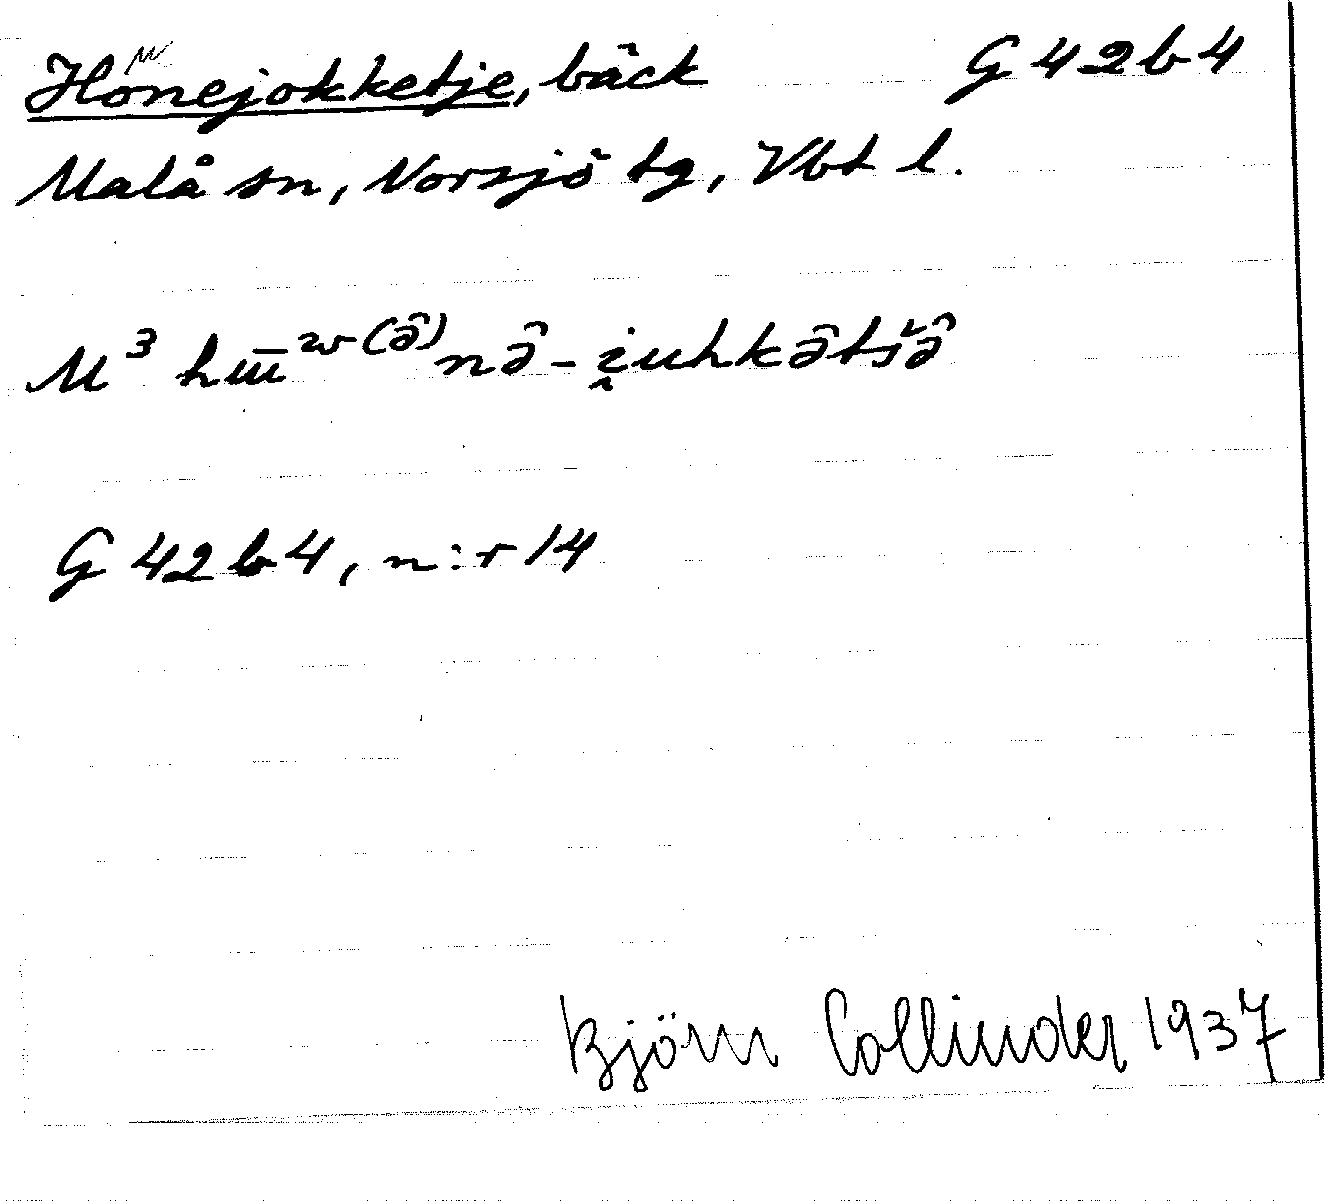 Hönejokketje, bäck G 42 b 4
Malå sn, Norsjö tg, Vbt l.
M³
G 42 b 4, n:r 14
Björn Collinder 1937